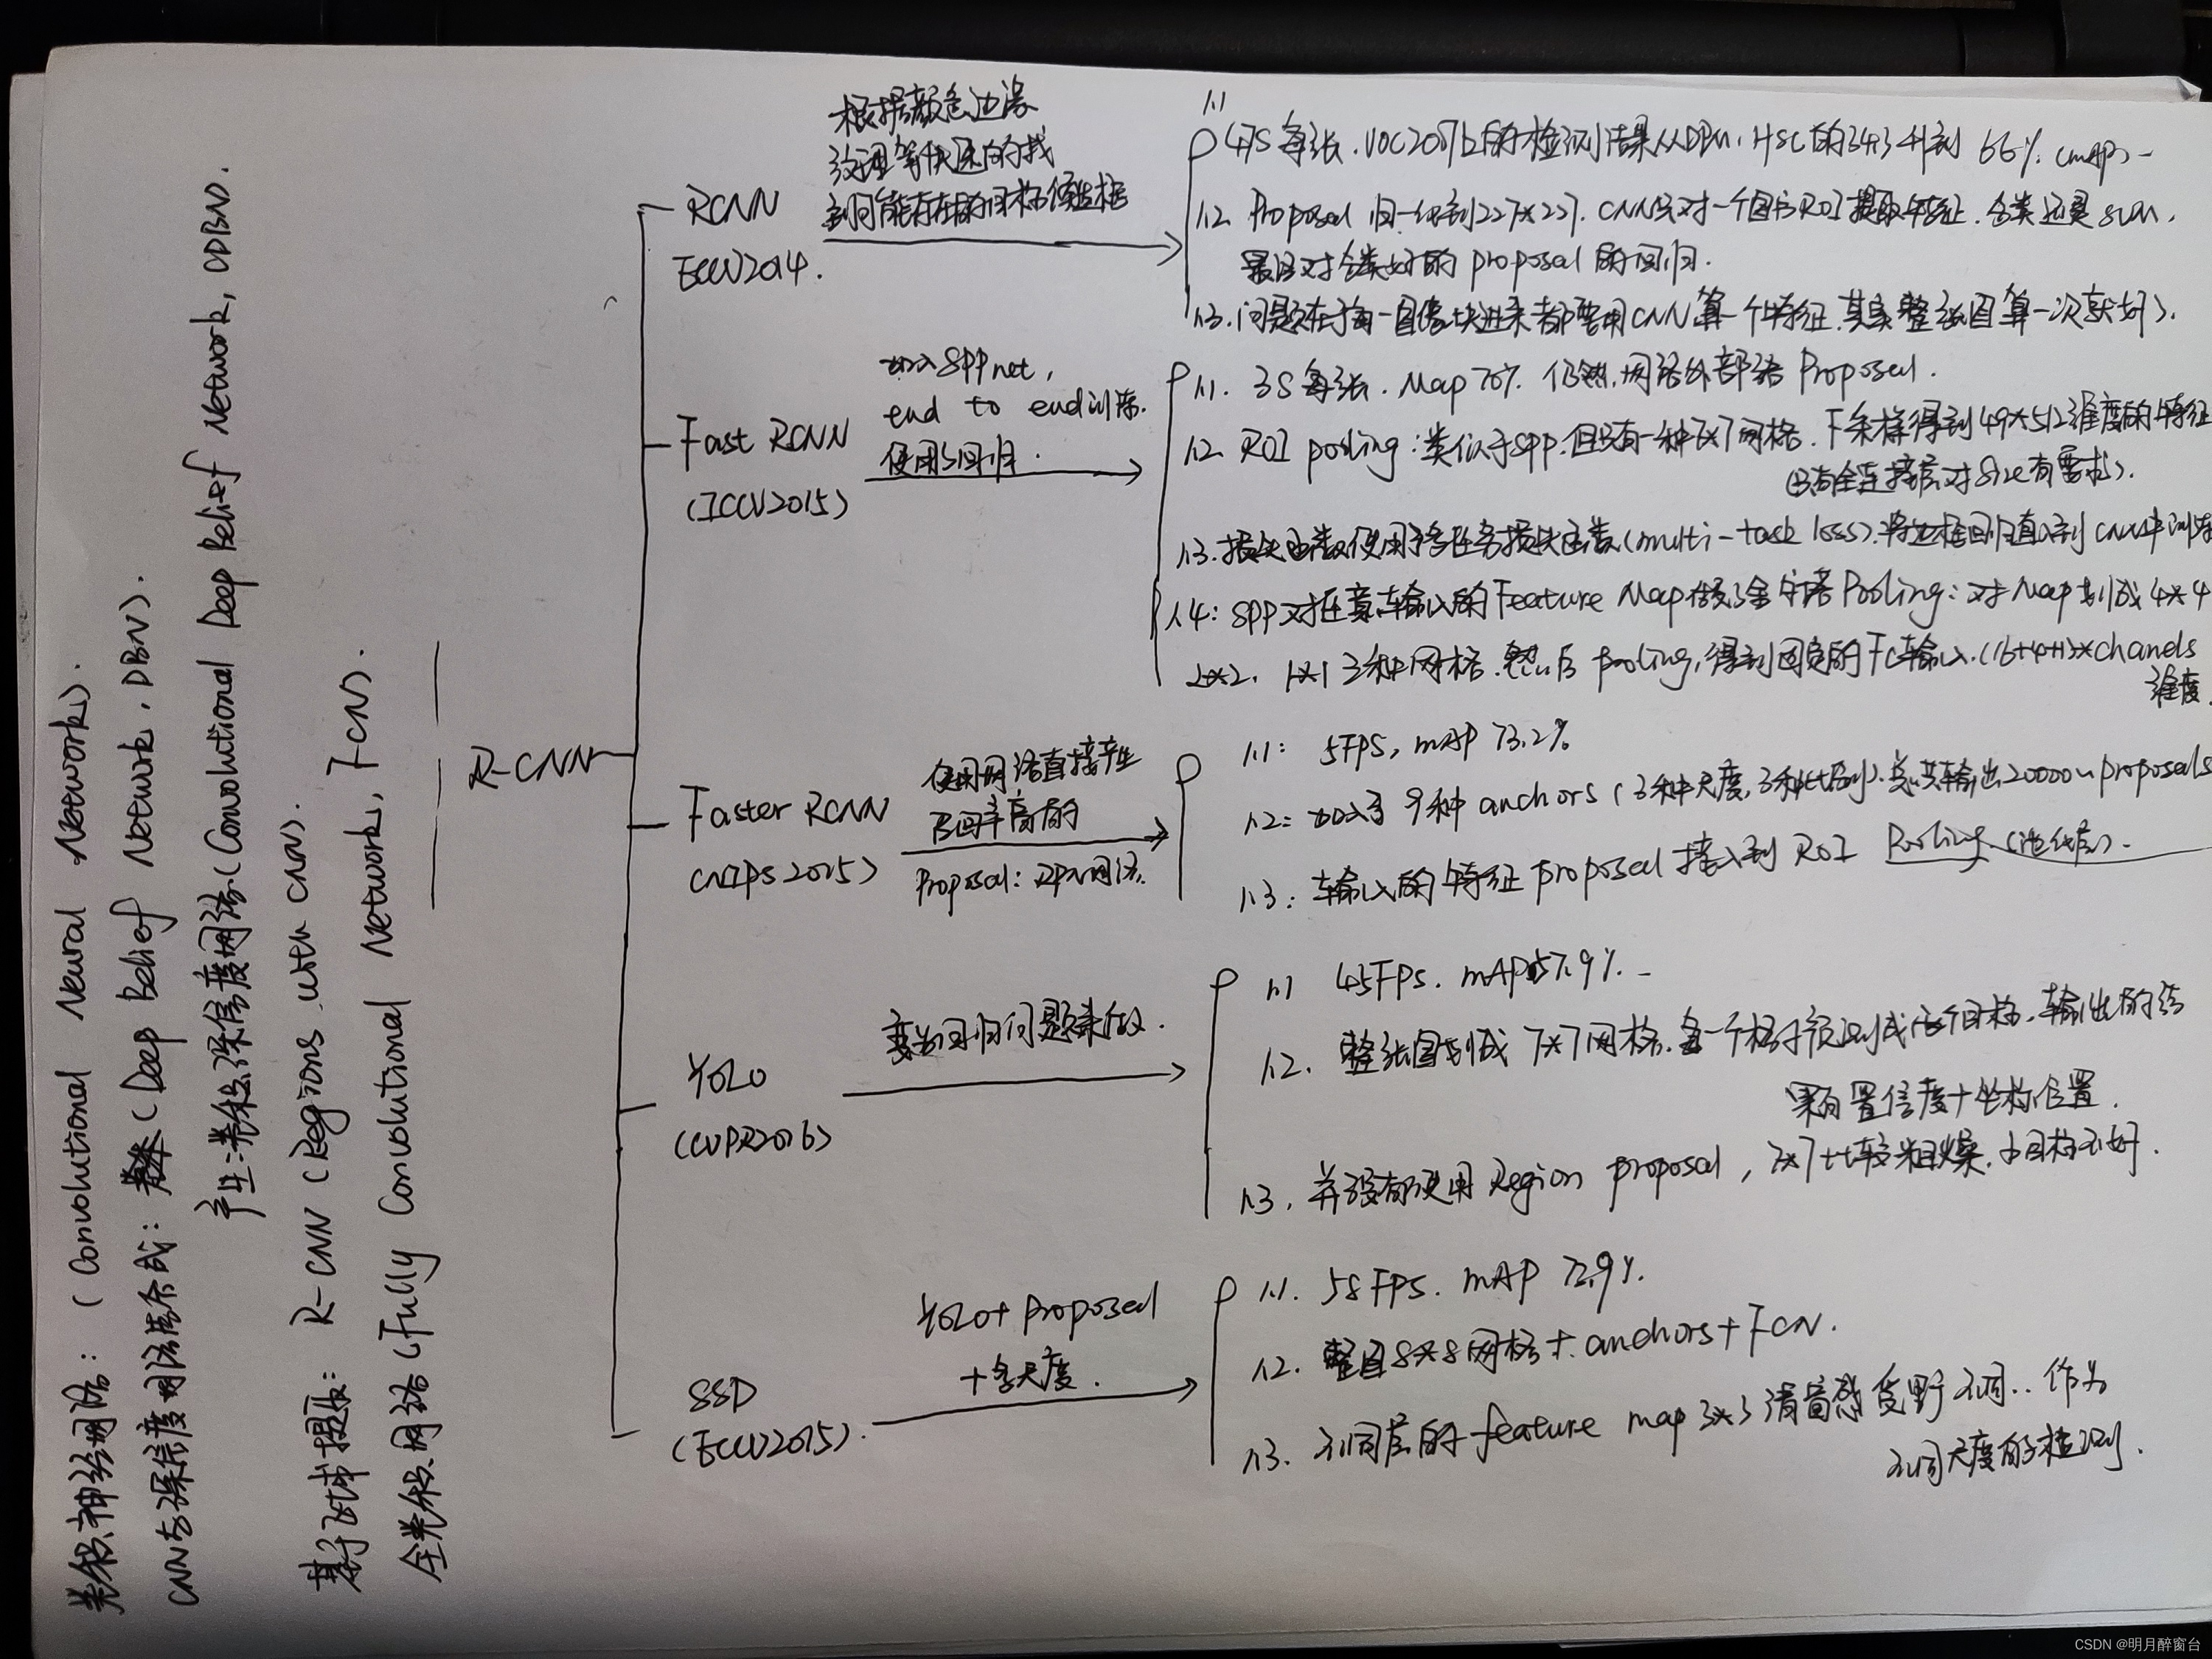 卷积神经网络：（Convolutional Neural Networks）.
CNN与深信度网络集成：（Deep Belief Network, DBN）.
产生：卷积深信度网络（Convolutional Deep Belief Network, CDBN）.
基于 R-CNN（Regions with CNN）.
全卷积网络（Fully Convolutional Network, FCN）.
R-CNN
RCNN
ECCV2014.
根据颜色边缘
纹理等快速的找
到可能存在的目标候选框
1.1
47S每张.VOC2007上的检测结果从DPM, HSC的34.3 升到 66%.(mAP)-
1.2 Proposal 归一化到227*227. CNN只对一个图片ROI提取特征.分类还是SVM,
最后对分类好的 proposal 的回归.
1.3.问题在于每一图像块进来都要用CNN算一个特征.其实整张图算一次就好).
Fast RCNN
(ICCV2015)
加入SPPnet,
end to end训练.
使用回归.
1.1. 3S每张. Map 70%. 仍然.网络外部 Proposal.
1.2 ROI pooling:类似于SPP.但只有一种7*7网格.下采样得到49*512维度的特征
(只有全连接层对Size有要求).
1.3.损失函数使用多任务损失函数(multi-task loss).将边框回归直入到CNN中训练
1.4:SPP对任意输入的Feature Map做了金字塔Pooling:对Map划成4*4
2*2. 1*1 3种网格.然后 pooling,得到固定的Fc输入.(16+4+1)*chanels
维度.
Faster RCNN
(NIPS2015)
使用网络直接产生
召回率高的
Proposal: RPN网络.
1.1: 5FPS, mAP 73.2%
1.2: 加入了 9种 anchors(3种尺度,3种比例).总共输出20000个proposals
1.3: 输入的特征 proposal 接入到 ROI Pooling.(池化层).
YOLO
(CVPR2016)
变为回归问题来做.
1.1 45FPS. mAP 57.9%.-
1.2. 整张图划成 7*7网格.每一个格子预测成目标.输出的结
果有置信度+坐标位置.
1.3. 并没有使用 Region proposal, 7*7比较粗燥.小目标不好.
SSD
(ECCV2015).
YOLO+ Proposal
+多尺度.
1.1. 58 FPS. mAP 72.9%.
1.2. 整图8*8网格+.anchors+FCN.
1.3. 不同层的feature map 3*3 感受野不同..作为
不同尺度的检测.
CSDN @明月醉窗台